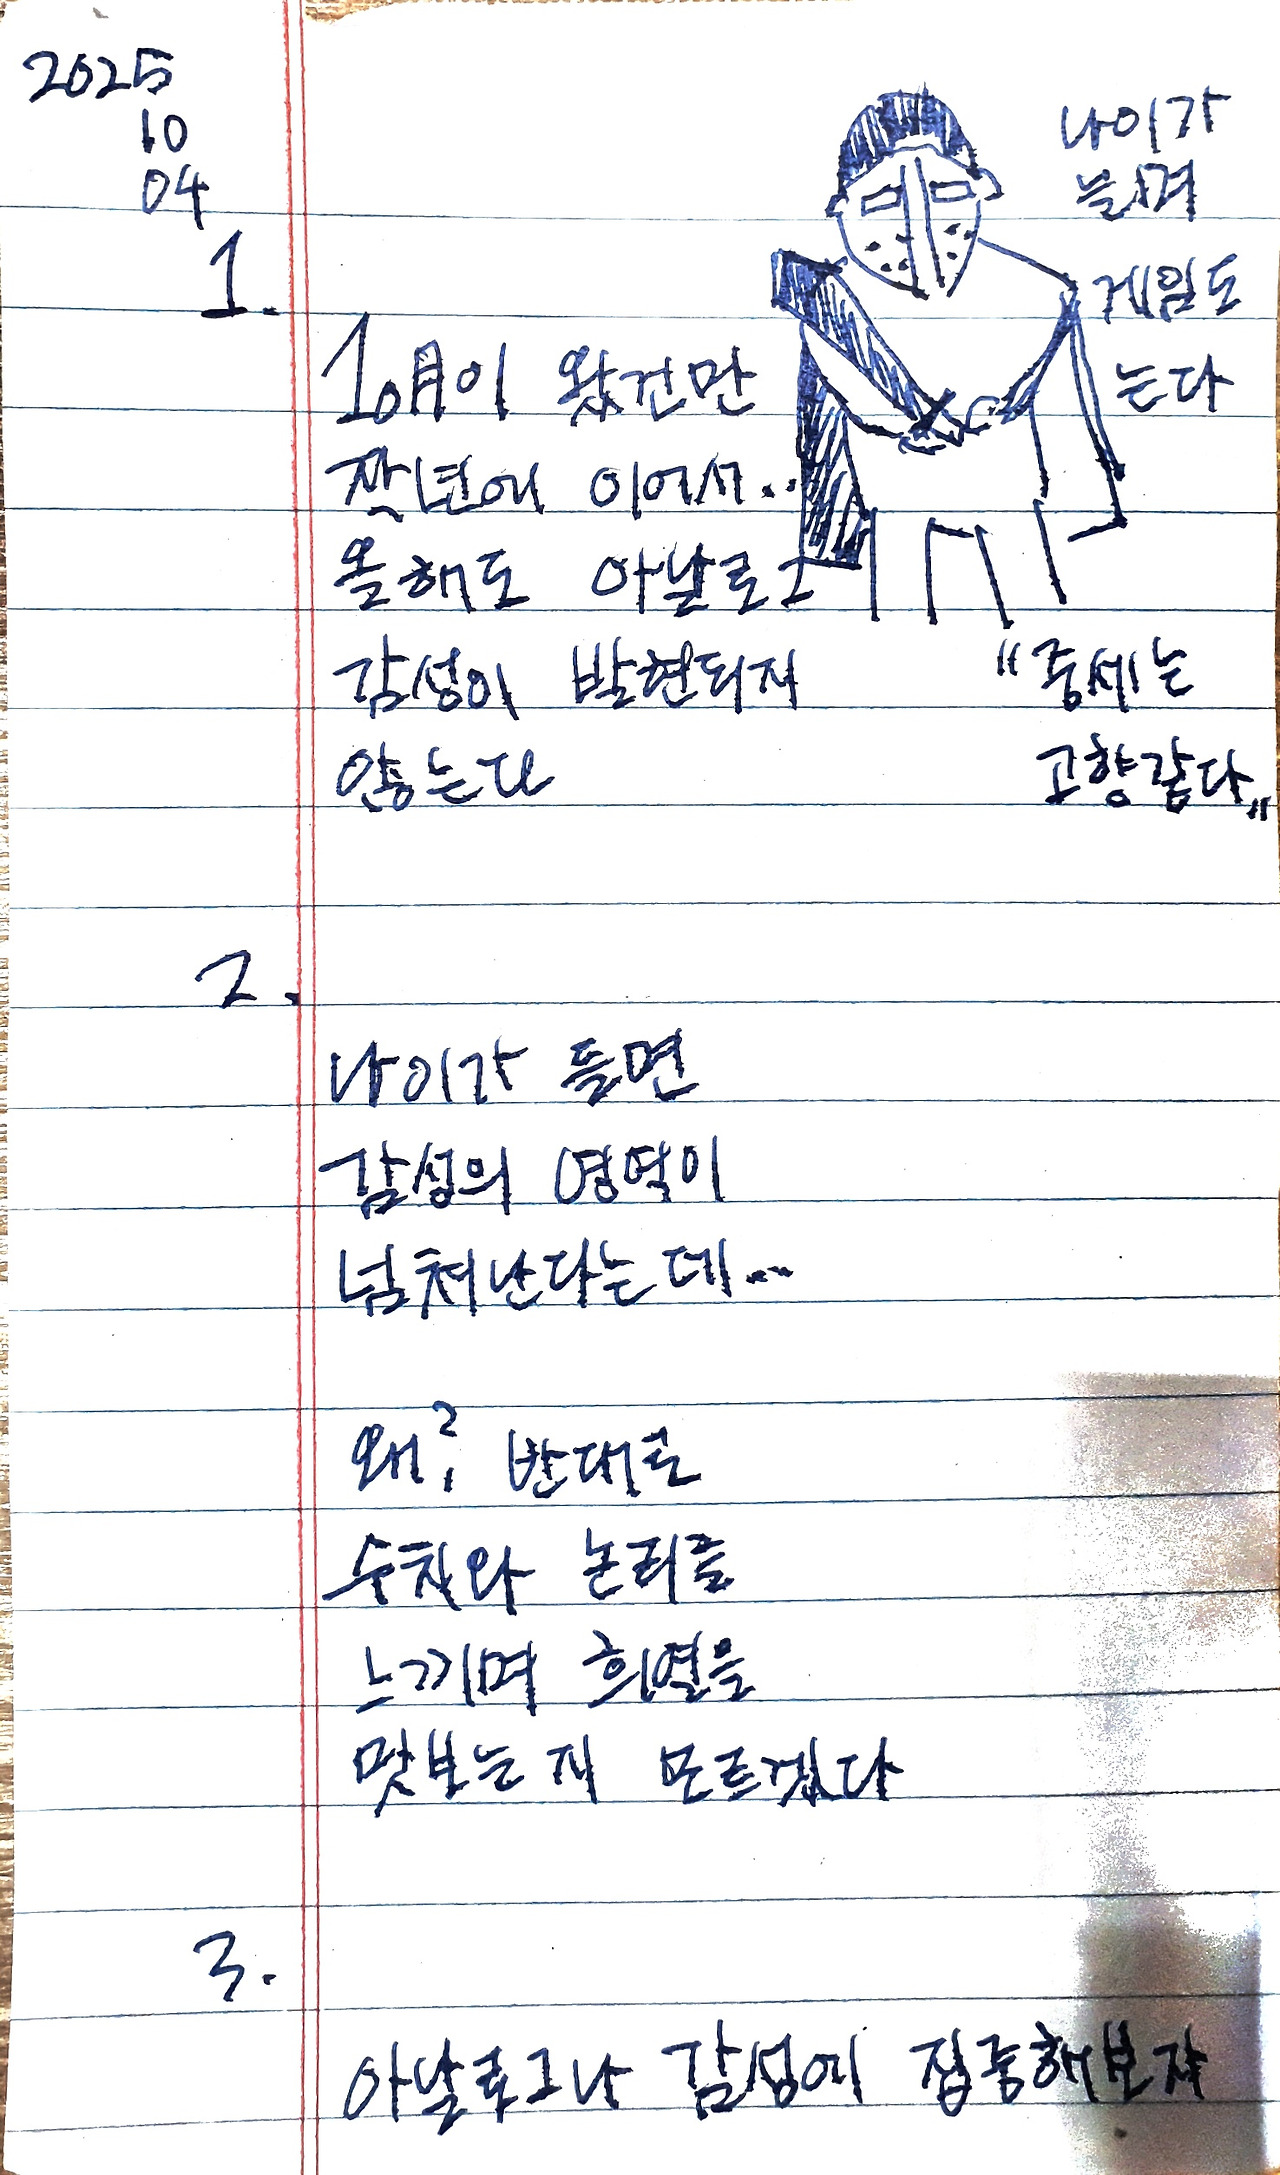 2025
10
04
1.
10월이 왔건만
작년에 이어서..
올해도 아날로그
감성이 발현되지
않는다
나이가
늘며
게임도
는다
"중세는
고향같다"
2.
나이가 들면
감성의 영역이
넘쳐난다는데...
왜? 반대로
수치와 논리를
느끼며 희열을
맛보는지 모르겠다
3.
아날로그나 감성에 집중해보자